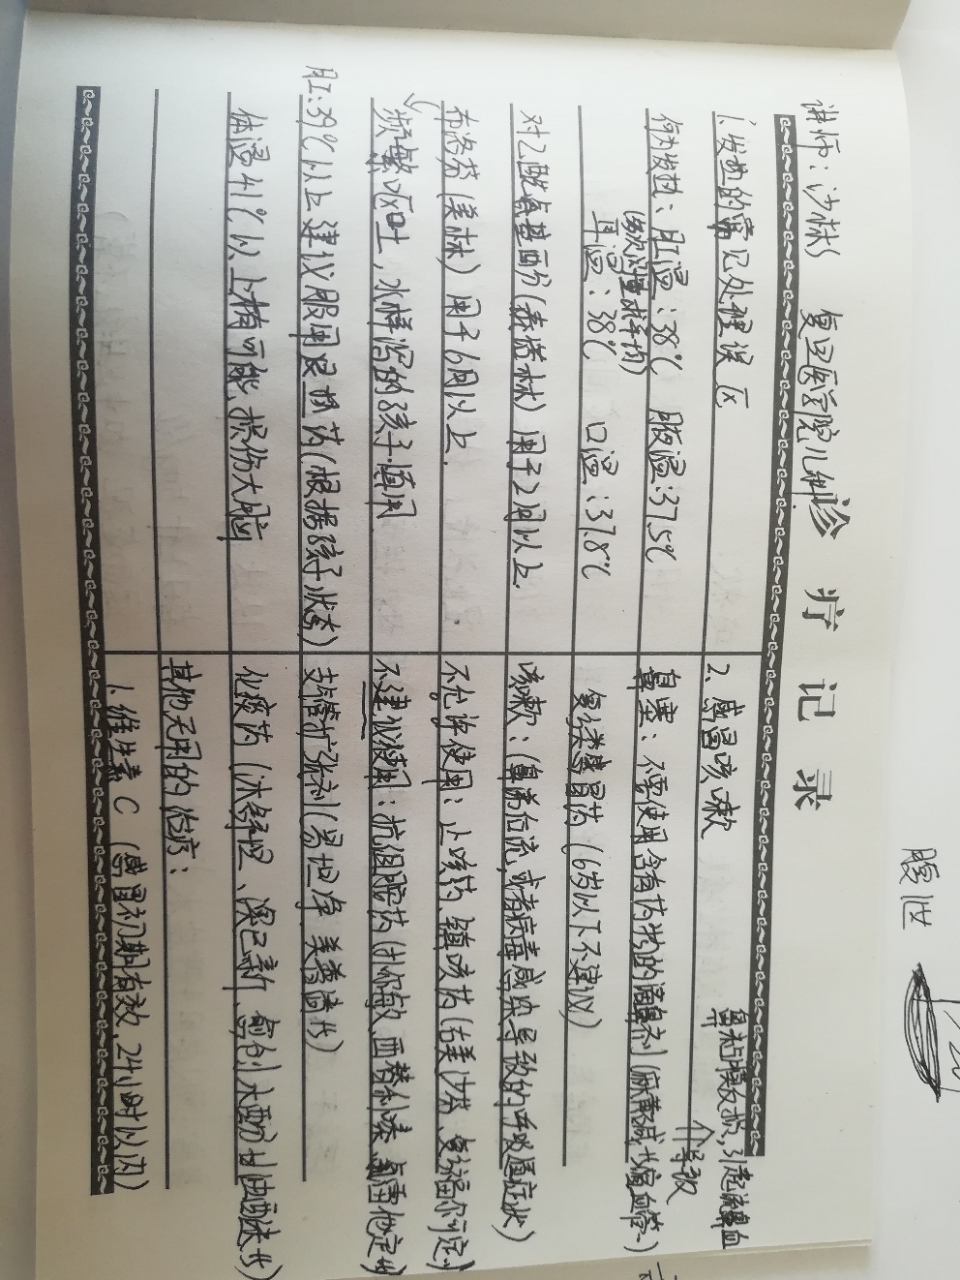 讲师：沙林 复旦医学院儿科
诊疗记录
1、发热的常见处理误区
何为发热：肛温：38℃ 腋温：37.5℃
(多次测量求平均)
耳温：38℃ 口温：37.8℃
对乙酰氨基酚(泰诺林) 用于2月以上
布洛芬(美林) 用于6月以上.
频繁呕吐，水样泻的孩子.慎用
肛：39℃以上建议服用退烧药(根据孩子状态)
体温41℃以上有可能损伤大脑
2、感冒咳嗽
鼻粘膜反损，引起流鼻血
个导致
鼻塞：不要使用含有药物的滴鼻剂(麻黄碱 收缩血管)
复方类感冒药 (6岁以下不建议)
咳嗽：(鼻涕后流，或者病毒感染导致的呼吸道症状)
不允许使用：止咳药 镇咳药(右美沙芬、
不建议使用：抗组胺药(开瑞敏 西替利嗪
支气管扩张剂(易坦净 美普清
化痰药(沐舒坦、
其他无用的治疗：
1.维生素C (感冒初期有效，24小时以内)
腹泄